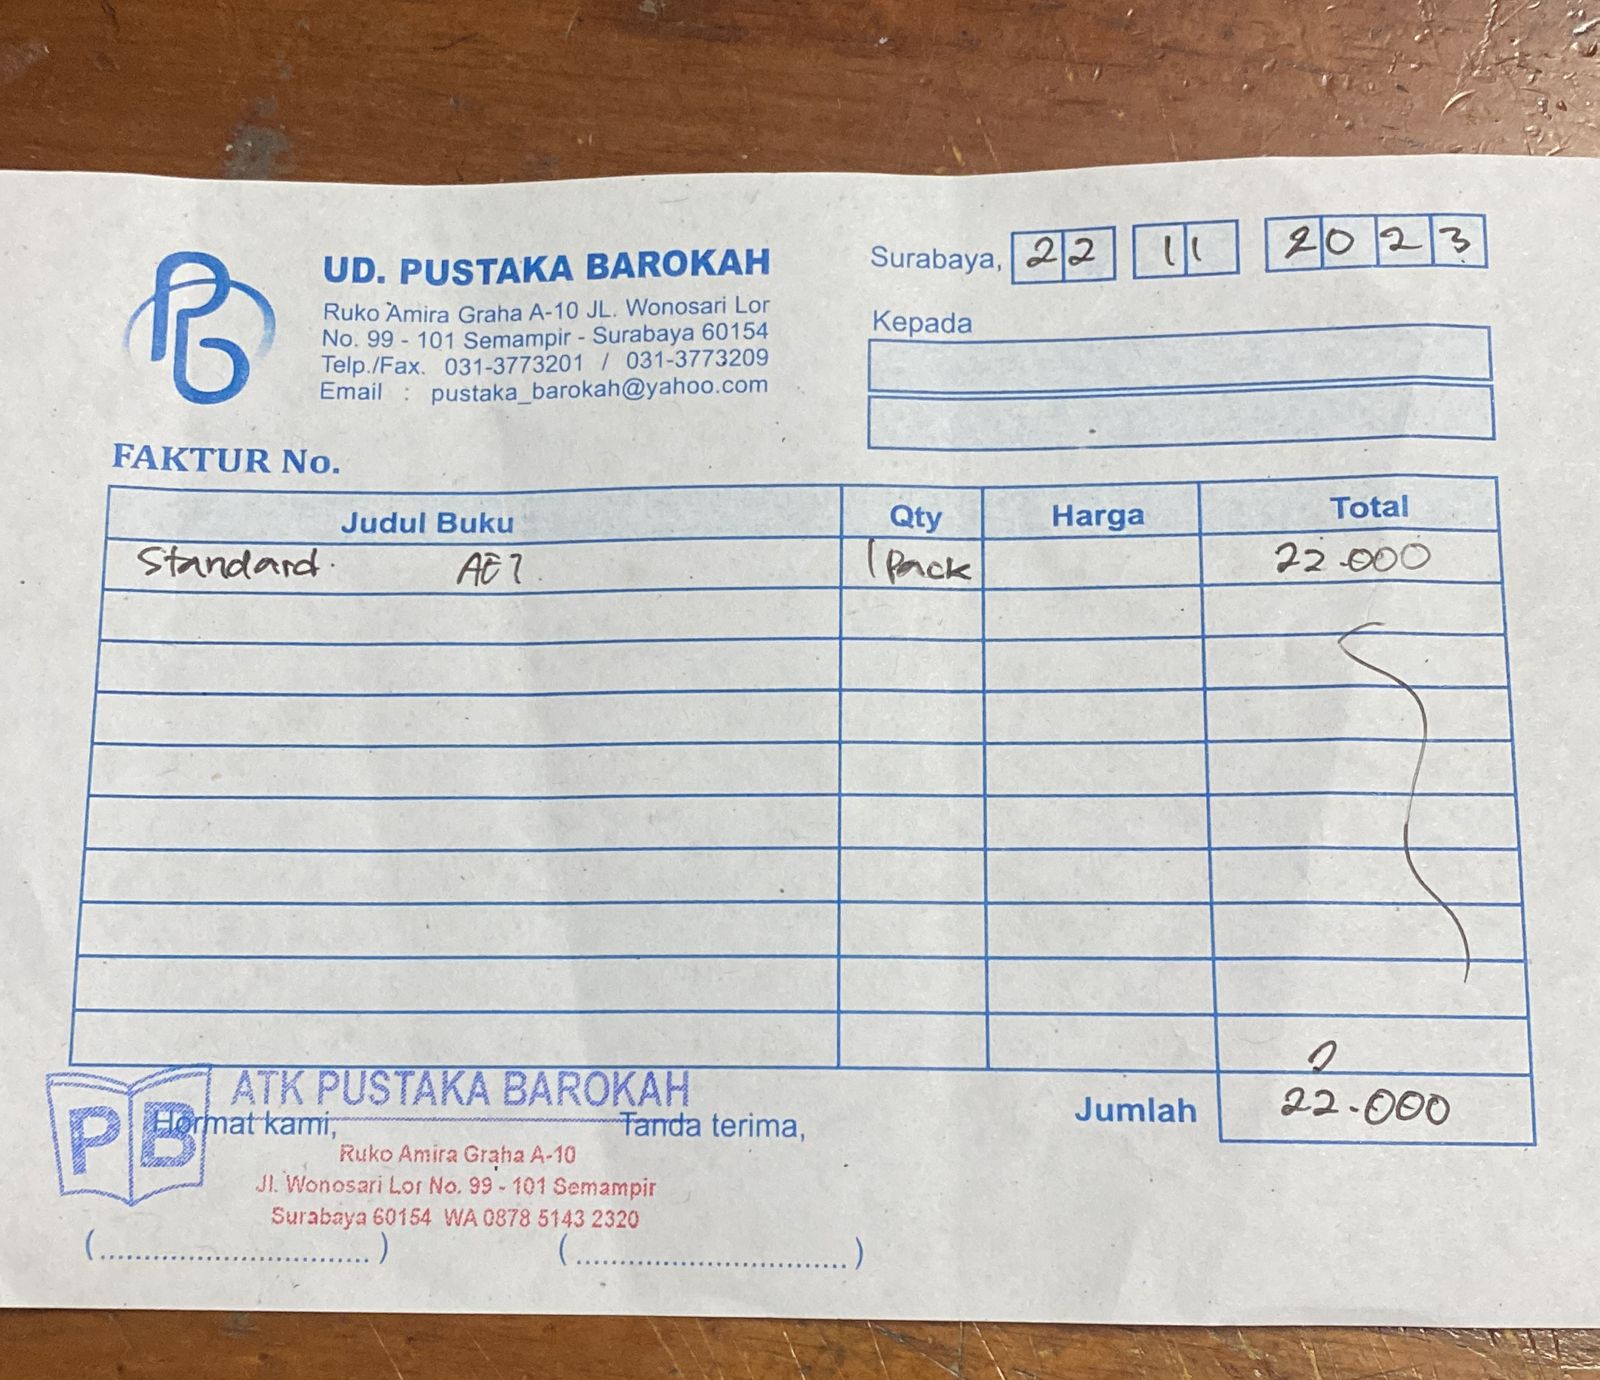 UD. PUSTAKA BAROKAH
Ruko Amira Graha A-10 JL. Wonosari Lor
No. 99 - 101 Semampir - Surabaya 60154
Telp./Fax. 031-3773201 / 031-3773209
Email : pustaka_barokah@yahoo.com
Surabaya, 22 11 2023
Kepada
FAKTUR No.
Judul Buku Qty Harga Total
Standard. AE7. 1 Pack 22.000
Jumlah 22.000
Hormat kami, Tanda terima,
PB ATK PUSTAKA BAROKAH
Ruko Amira Graha A-10
Jl. Wonosari Lor No. 99 - 101 Semampir
Surabaya 60154 WA 0878 5143 2320
(..............................) (..............................)